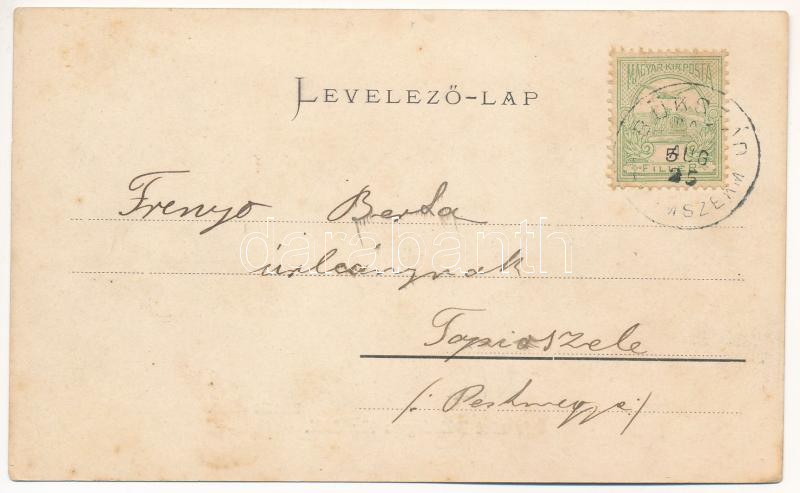 LEVELEZŐ-LAP
MAGYAR KIR. POSTA
5
FILLÉR
AUG
25
Frenyo Berta
úrleánynak
Tapioszele
/: Pestmegye :/
darabanth